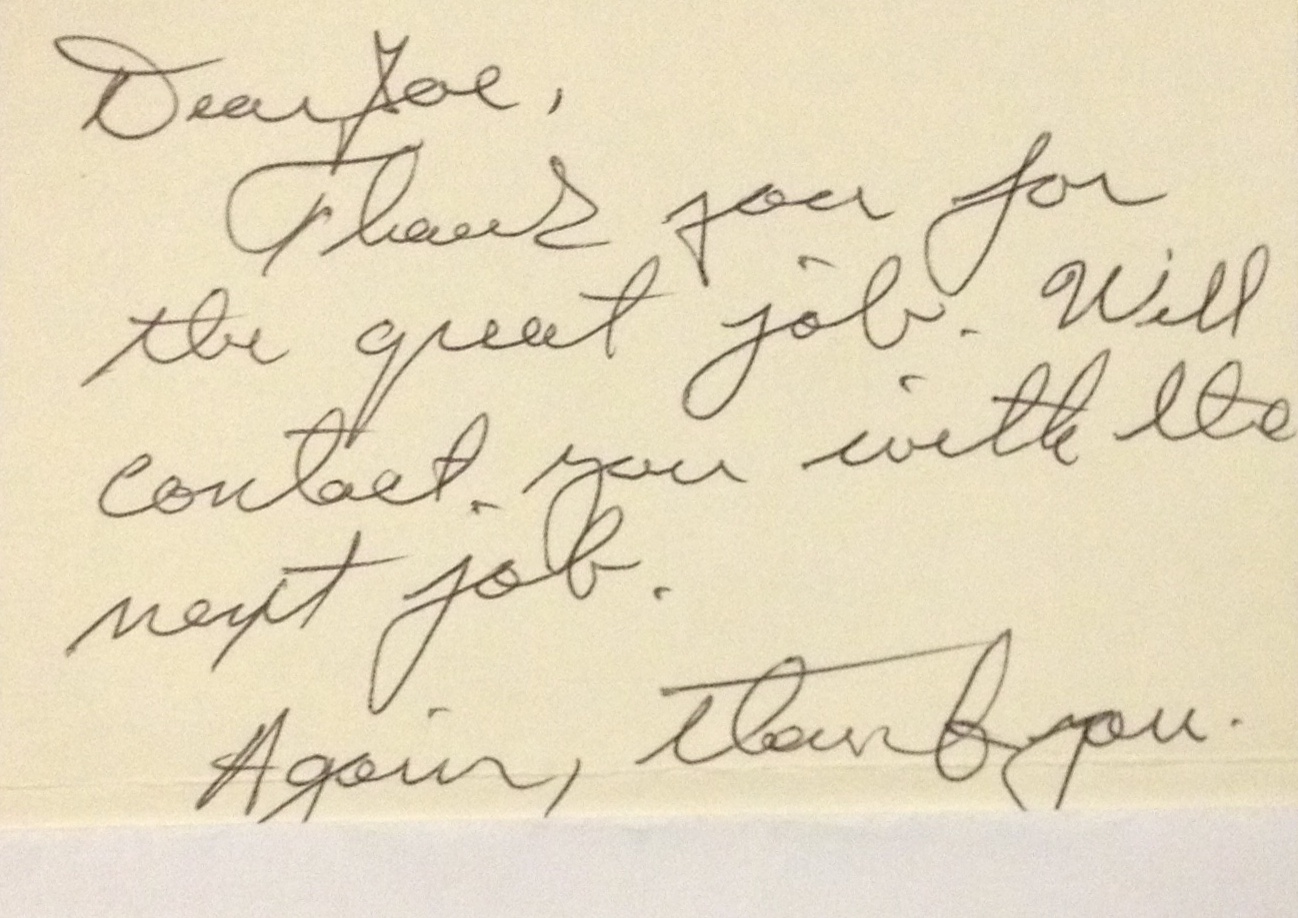 Dear Joe,
Thank you for
the great job. Will
contact you with the
next job.
Again, thank you.